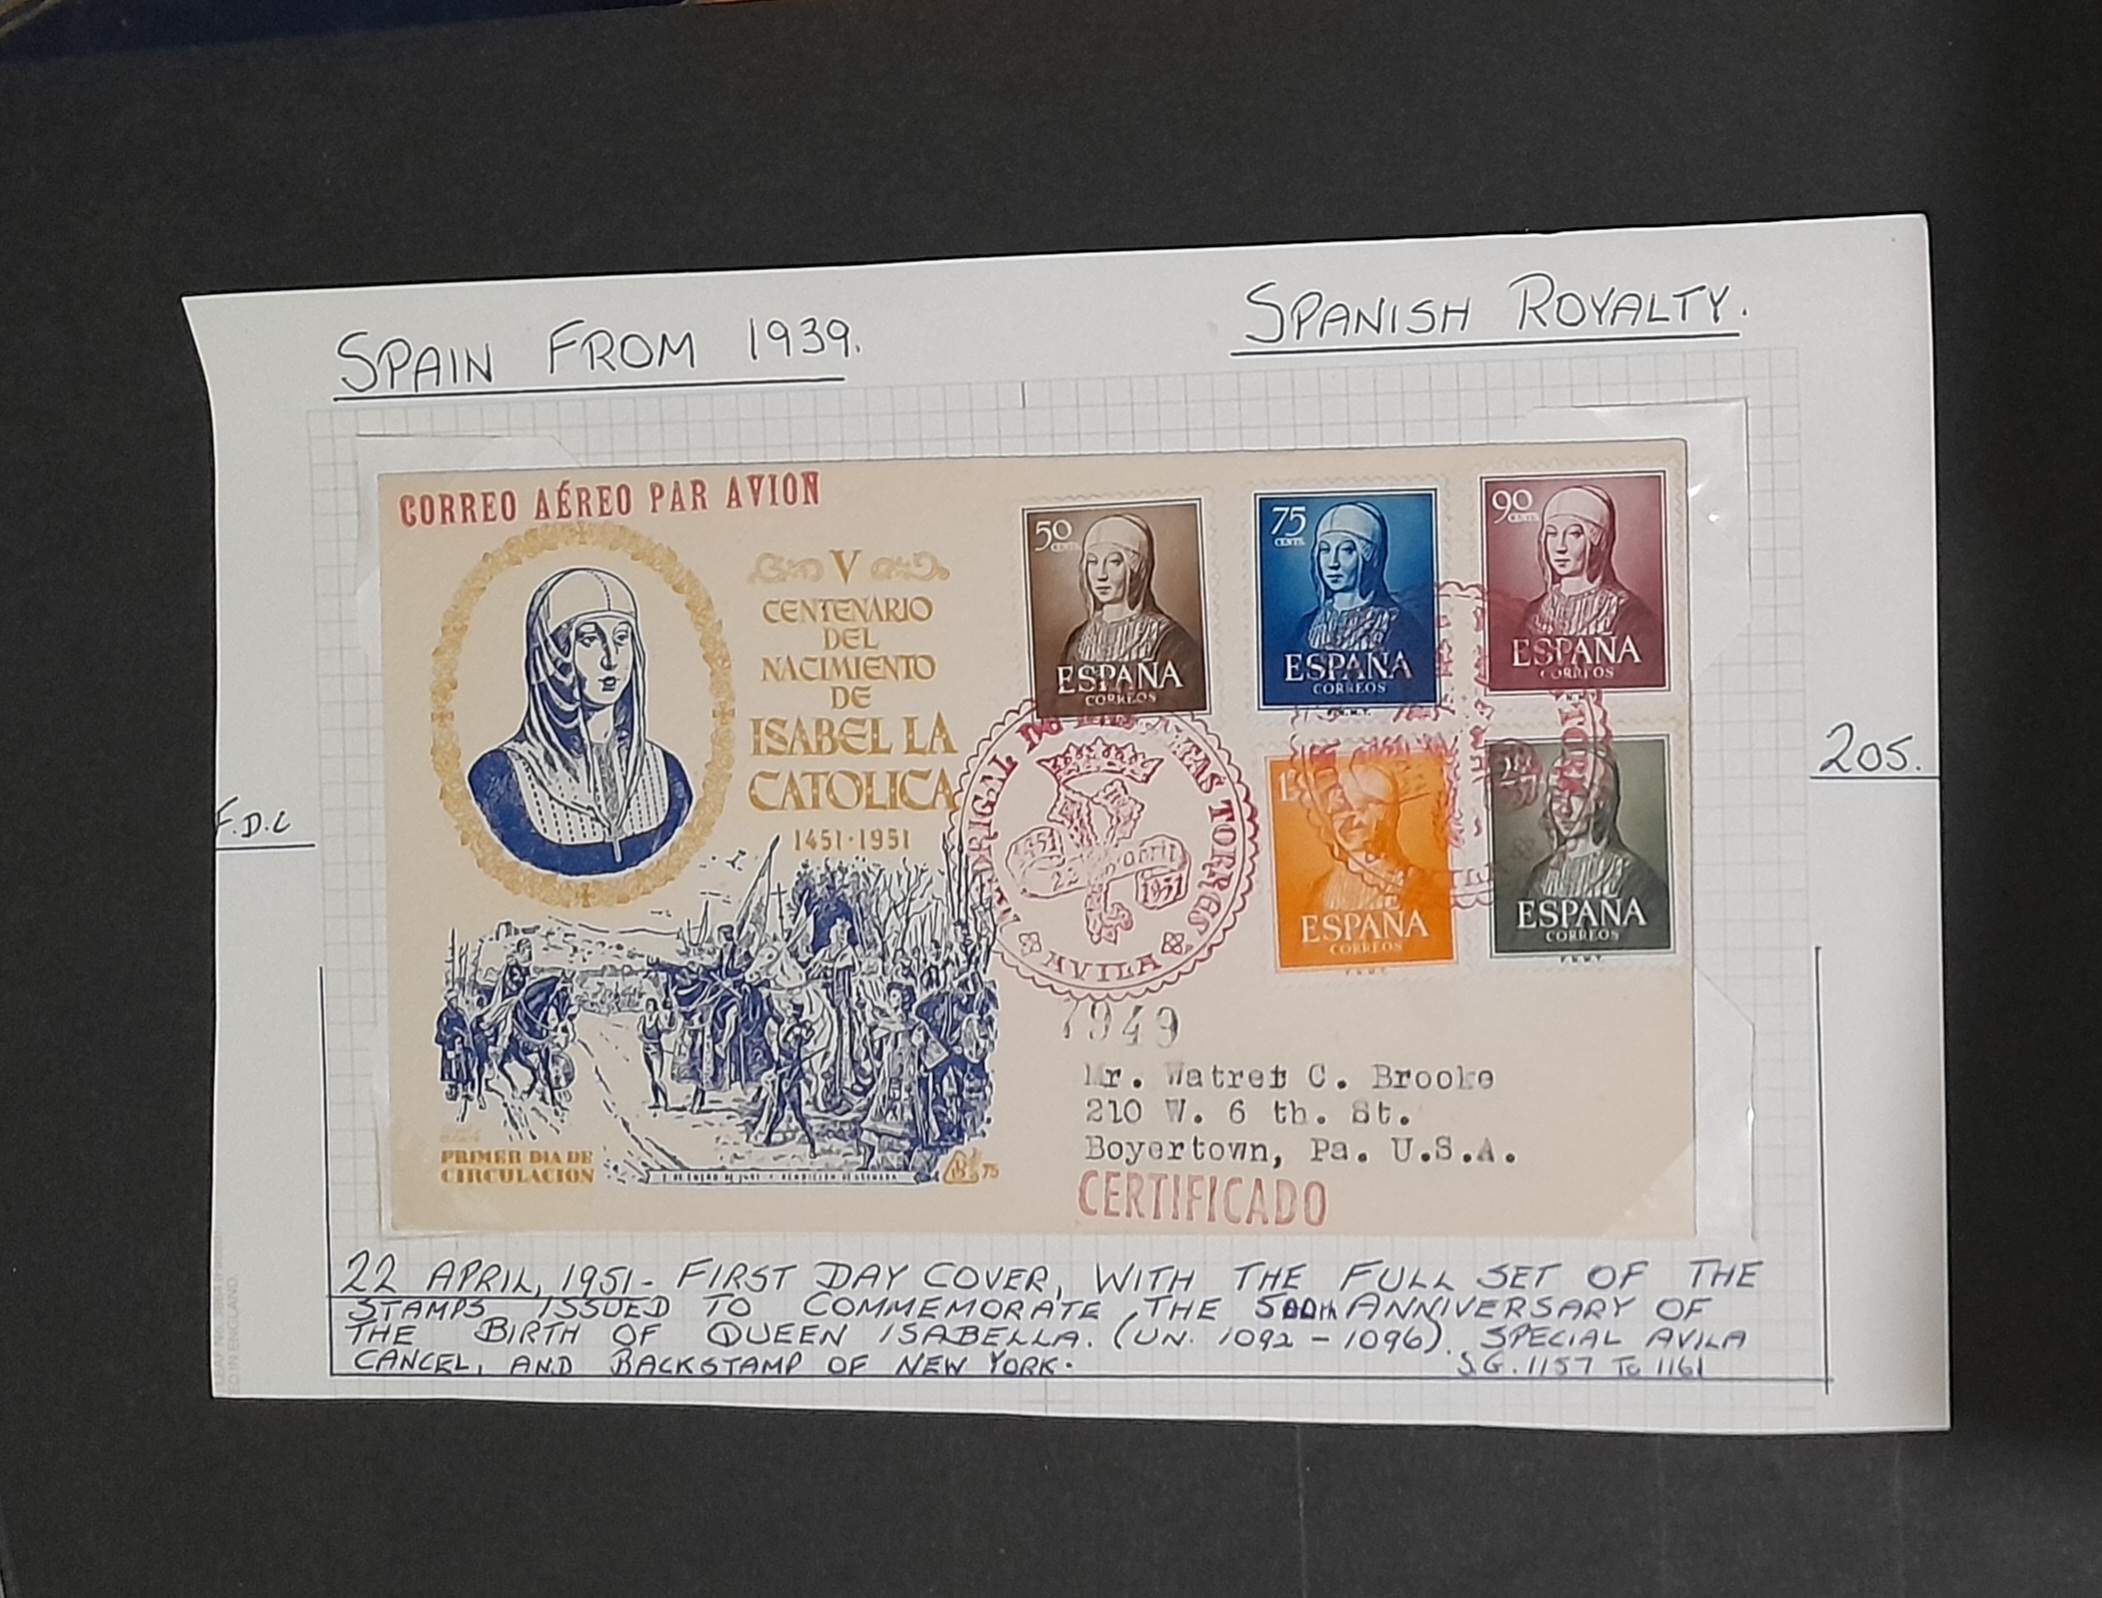 SPAIN FROM 1939.
SPANISH ROYALTY.
CORREO AÉREO PAR AVION
V
CENTENARIO
DEL
NACIMIENTO
DE
ISABEL LA
CATOLICA
1451·1951
50
CENTS.
ESPAÑA
CORREOS
75
CENTS.
ESPAÑA
CORREOS
F.N.M.T.
90
CENTS.
ESPAÑA
CORREOS
ESPAÑA
CORREOS
F.N.M.T.
ESPAÑA
CORREOS
F.N.M.T.
MADRIGAL DE LAS ALTAS TORRES
1451 22 abril 1951
AVILA
F.D.C
205.
7949
Mr. Watret C. Brooke
210 W. 6 th. St.
Boyertown, Pa. U.S.A.
CERTIFICADO
PRIMER DIA DE
CIRCULACION
75
22 APRIL, 1951 - FIRST DAY COVER, WITH THE FULL SET OF THE
STAMPS ISSUED TO COMMEMORATE THE 500th ANNIVERSARY OF
THE BIRTH OF QUEEN ISABELLA. (UN. 1092 - 1096). SPECIAL AVILA
CANCEL, AND BACKSTAMP OF NEW YORK.
S.G. 1157 To 1161
ED IN ENGLAND.